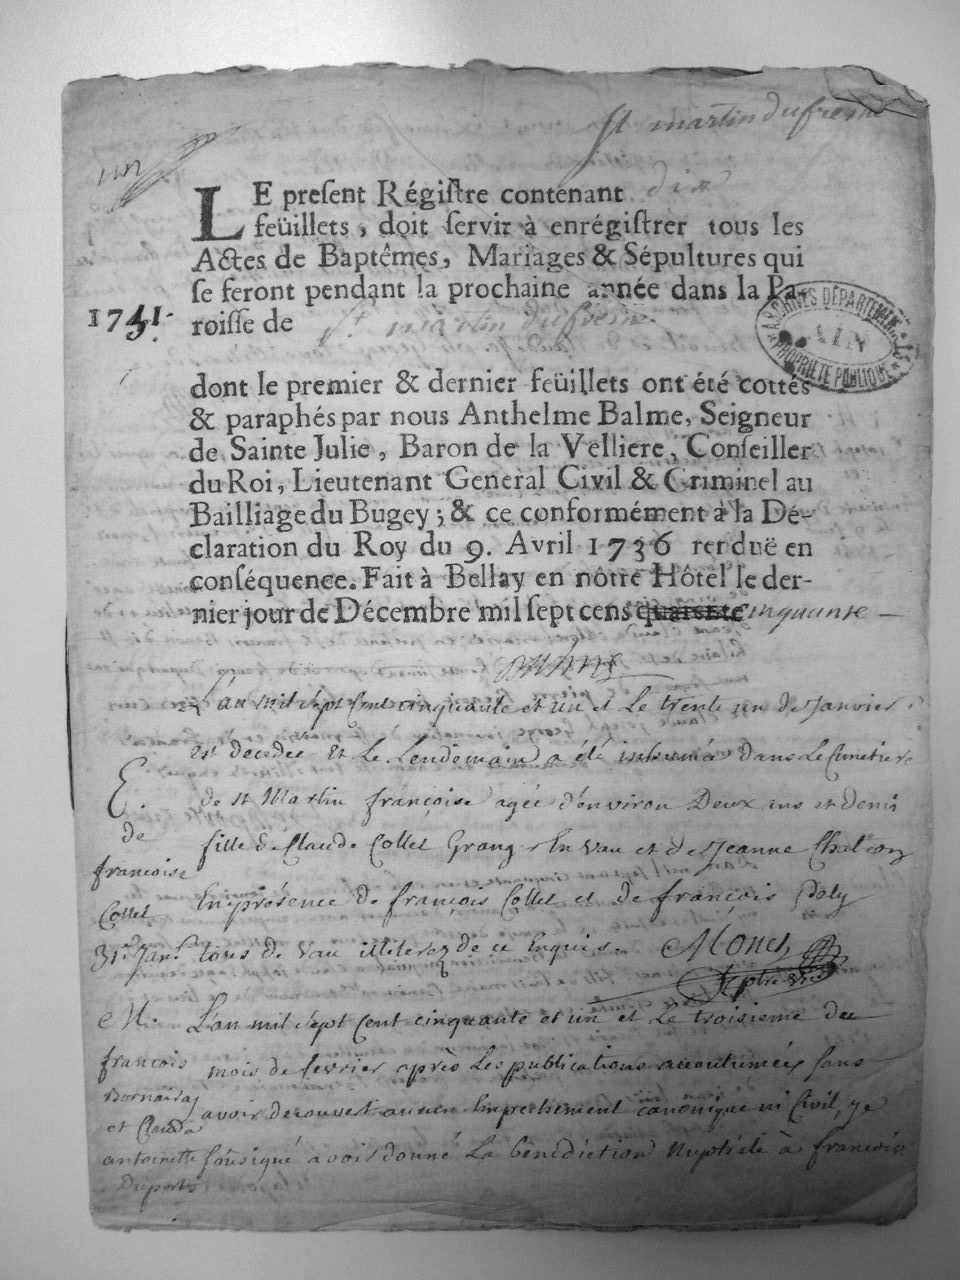 St martin dufresne
un
LE preſent Régiſtre contenant dix
feüillets, doit ſervir à enrégiſtrer tous les
Actes de Baptêmes, Mariages & Sépultures qui
ſe feront pendant la prochaine année dans la Pa-
1751.
roiſſe de St martin dufresne.
ARCHIVES DÉPARTEMENTALES
AIN
PROPRIÉTÉ PUBLIQUE
dont le premier & dernier feüillets ont été cottés
& paraphés par nous Anthelme Balme, Seigneur
de Sainte Julie, Baron de la Velliere, Conſeiller
du Roi, Lieutenant General Civil & Criminel au
Bailliage du Bugey; & ce conformément à la Dé-
claration du Roy du 9. Avril 1736 renduë en
conſéquence. Fait à Bellay en nôtre Hôtel le der-
nier jour de Décembre mil ſept cens quarante cinquante
au mil sept Cent cinquante et un et Le trente un de Janvier
est decedee et Le Lendemain a été inhumé dans Le Cimetiere
E. de St Martin françoise agée d'environ Deux ans et demi
de fille de Claude Collet Grang. En vau et de Jeanne Chalon
francoise
Collet En présence de françois Collet et de françois
31e Janr. tous de vau illiterez de ce Enquis. Monet
M. L'an mil sept Cent cinquante et un et Le troisieme du
francois mois de fevrier après Les publications accoutumées sans
et Clauda avoir decouvert aucun Empechement canonique ni Civil, je
antoinette soûsigné avoir donné La bénédiction Nuptiale à francois
Duport